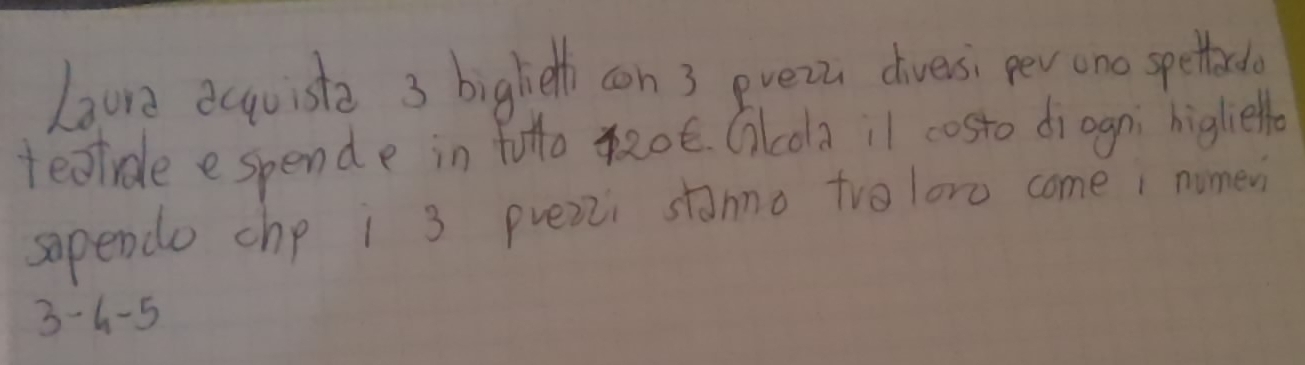 Laura acquista 3 biglietti con 3 prezzi diversi per uno spettacolo
teatrale e spende in tutto 120€. Calcola il costo di ogni biglietto
sapendo che i 3 prezzi stanno tra loro come i numeri
3-4-5